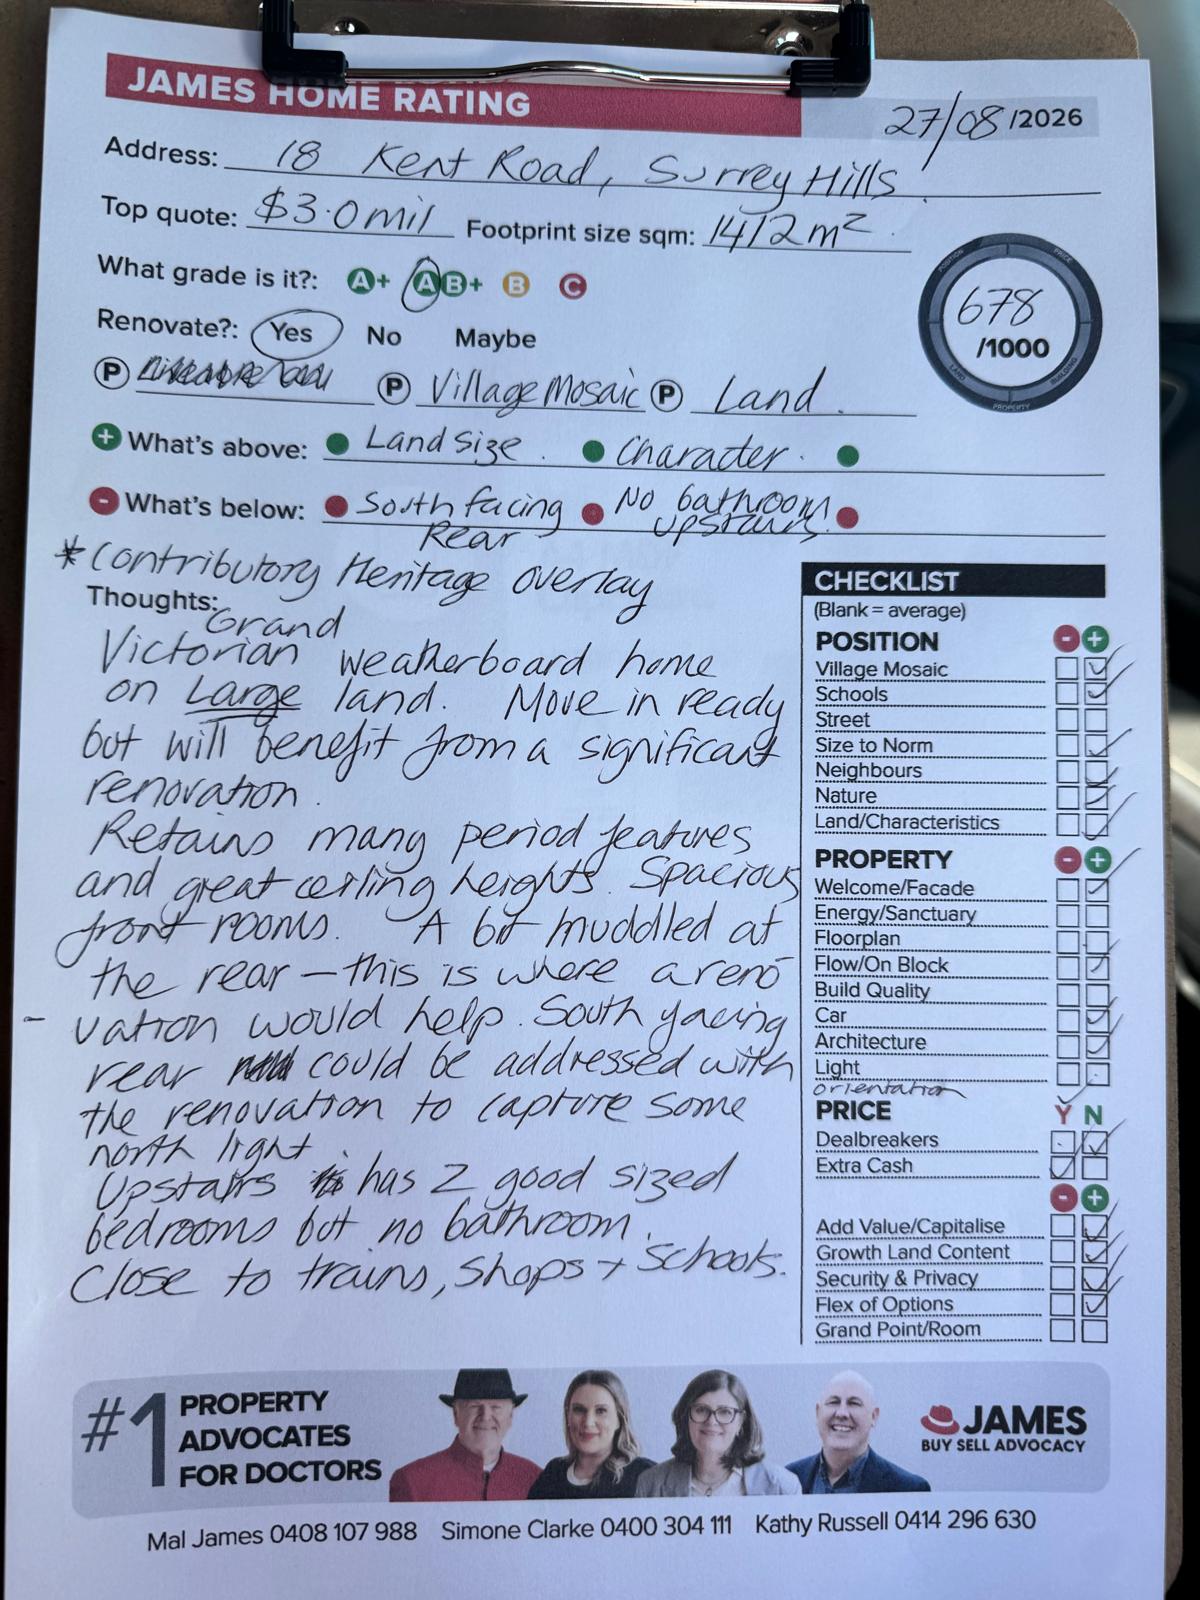 JAMES HOME RATING
27/08/2026
Address: 18 Kent Road, Surrey Hills.
Top quote: $3.0mil Footprint size sqm: 1412m²
What grade is it?: A+ A B+ B C
678
/1000
POSITION PRICE BUILDING PROPERTY LAND
Renovate?: Yes No Maybe
P P Village Mosaic P Land.
+ What's above: Land size. Character.
- What's below: South facing Rear No bathroom upstairs.
*Contributory Heritage overlay
Thoughts: Grand
Victorian weatherboard home
on Large land. Move in ready
but will benefit from a significant
renovation.
Retains many period features
and great ceiling heights. Spacious
front rooms. A bit muddled at
the rear – this is where a reno
- vation would help. South facing
rear could be addressed with
the renovation to capture some
north light.
Upstairs has 2 good sized
bedrooms but no bathroom.
Close to trains, shops + schools.
CHECKLIST
(Blank = average)
POSITION - +
Village Mosaic
Schools
Street
Size to Norm
Neighbours
Nature
Land/Characteristics
PROPERTY - +
Welcome/Facade
Energy/Sanctuary
Floorplan
Flow/On Block
Build Quality
Car
Architecture
Light
orientation
PRICE Y N
Dealbreakers
Extra Cash
- +
Add Value/Capitalise
Growth Land Content
Security & Privacy
Flex of Options
Grand Point/Room
#1 PROPERTY
ADVOCATES
FOR DOCTORS
JAMES
BUY SELL ADVOCACY
Mal James 0408 107 988 Simone Clarke 0400 304 111 Kathy Russell 0414 296 630